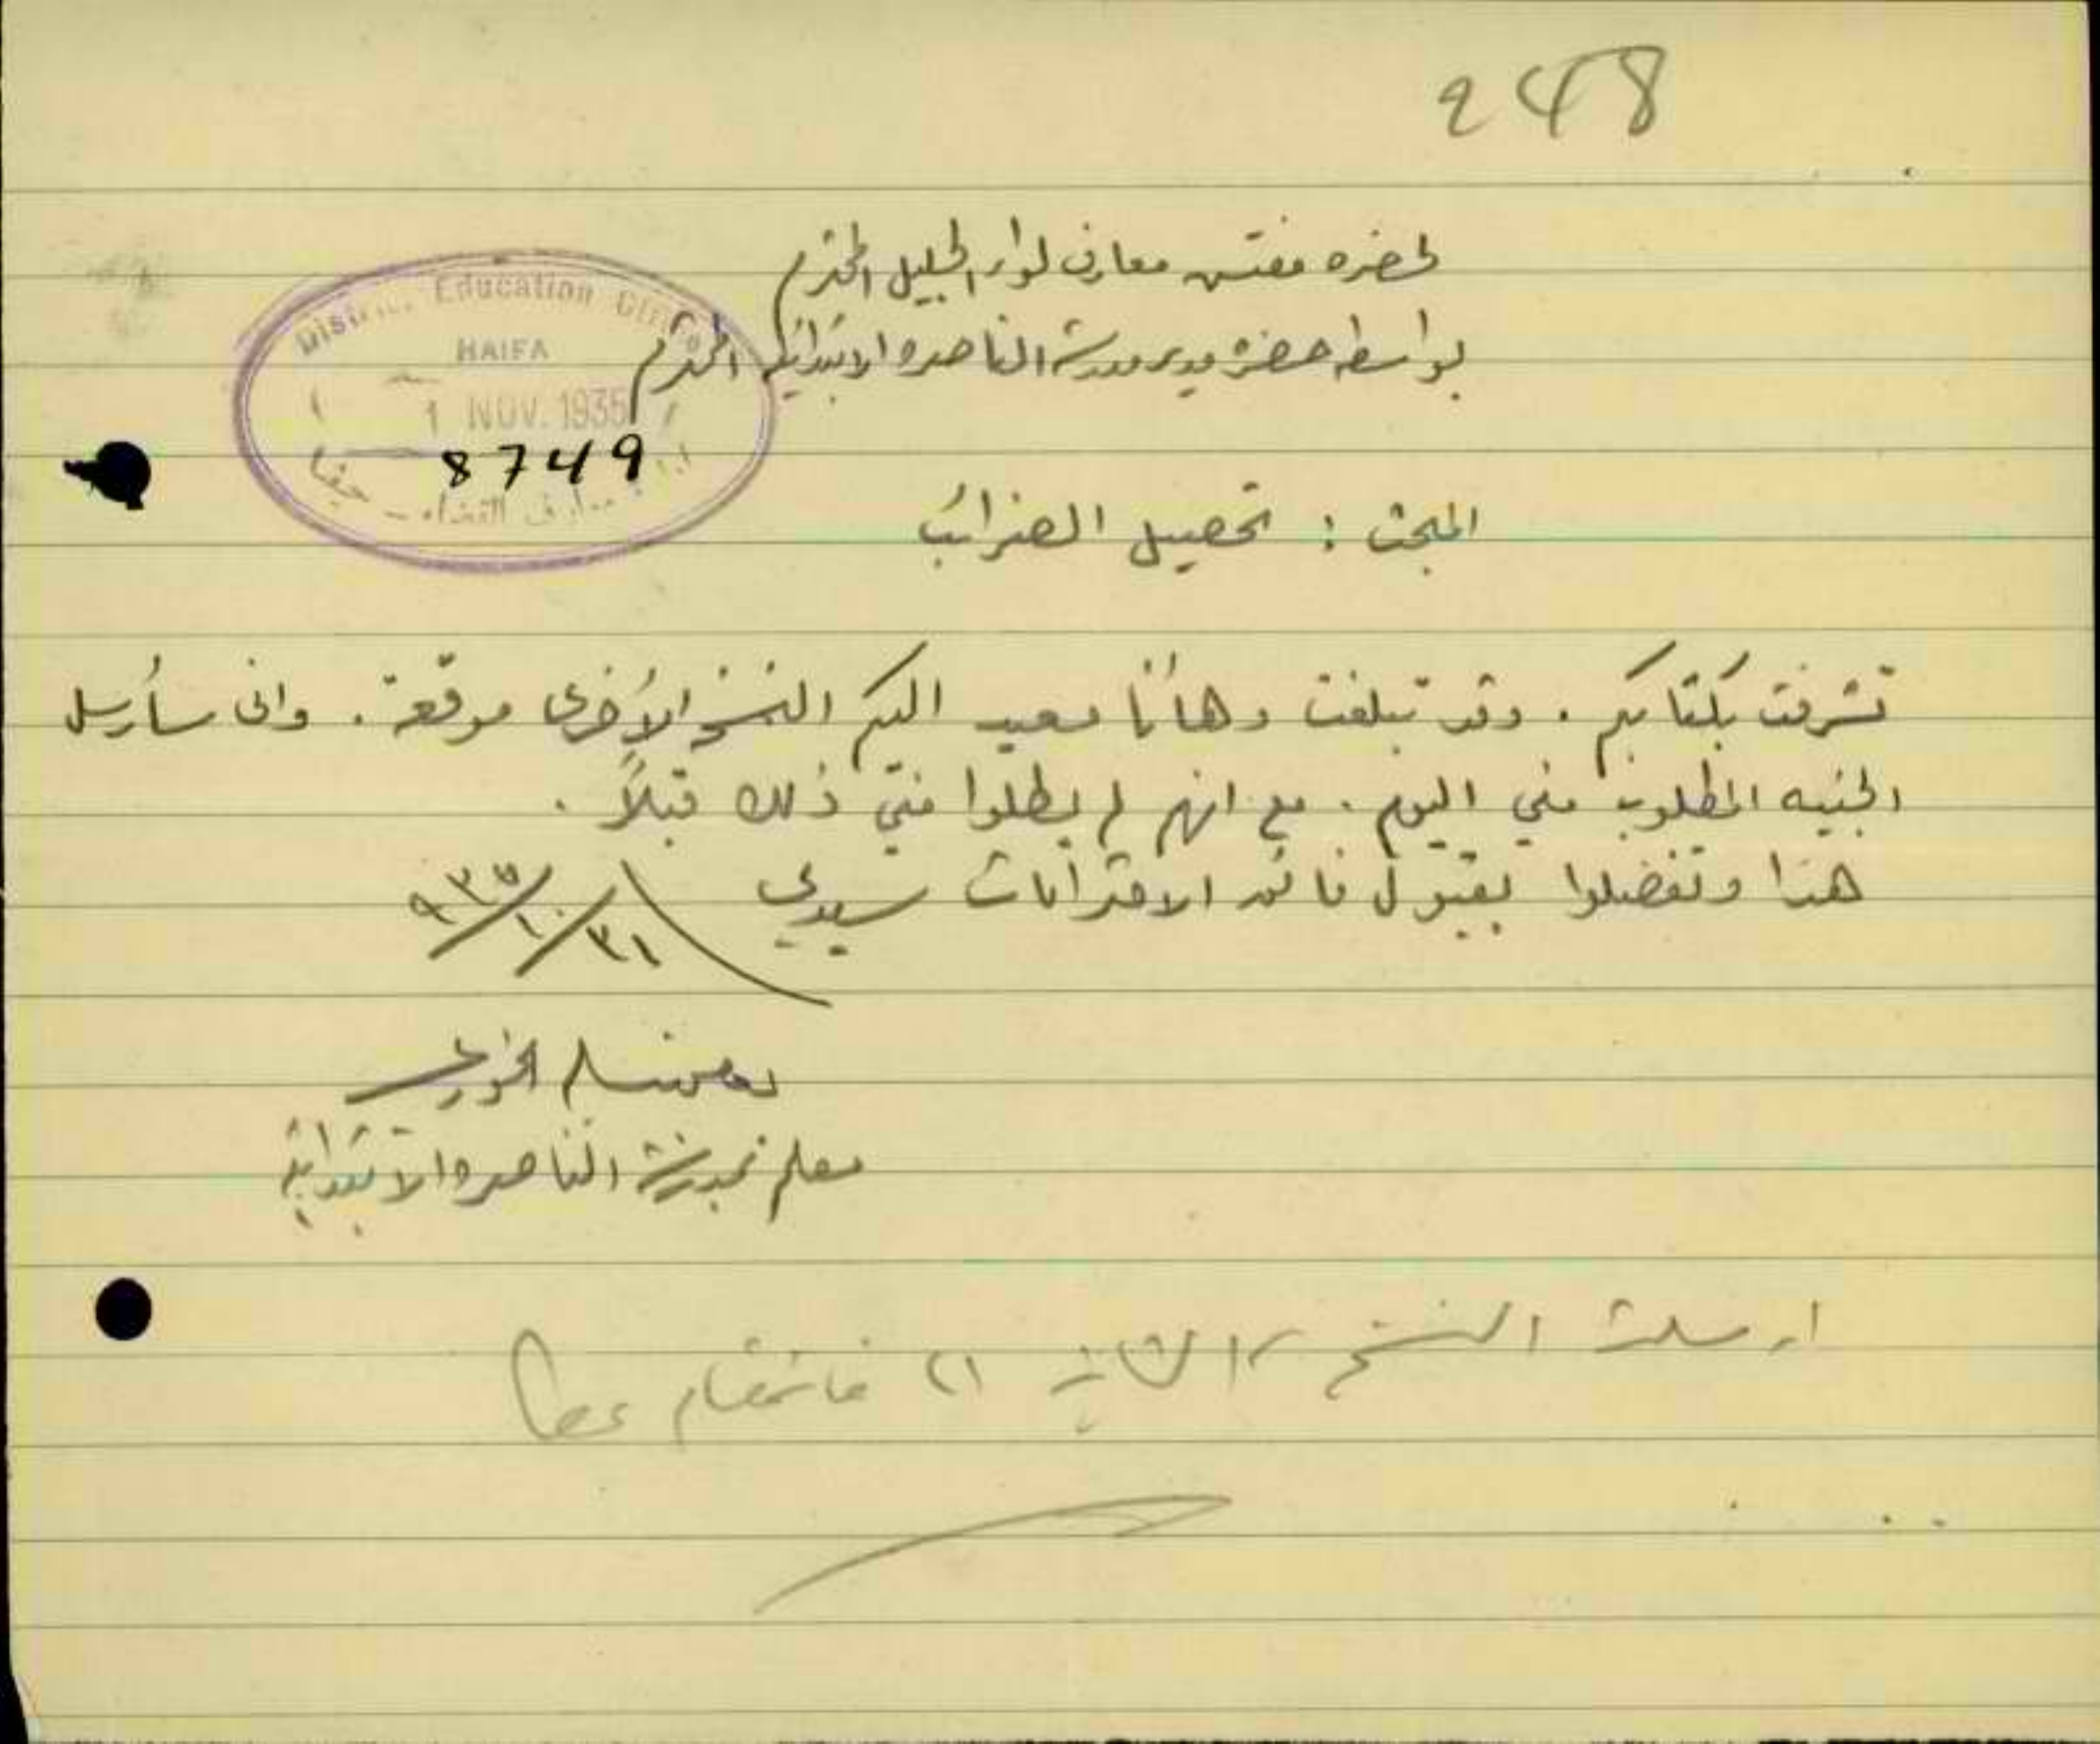 248
لحضرة مفتش معارف لواء الجليل المحترم
بواسطة حضرة مدير مدرسة الناصرة الابتدائية المحترم
District Education Office
HAIFA
1 NOV. 1935
8749
معارف القضاء - حيفا
المبحث : تحصيل الضرائب
تشرفت بكتابكم . وقد تبلغت وهأنا معيد اليكم النسخة الأخرى موقعة . واني سأرسل
الجنيه المطلوب مني اليوم . مع انهم لم يطلبوا مني ذلك قبلاً .
هذا وتفضلوا بقبول فائق الاحترامات سيدي
٣١/١٠/٩٣٥
الخوري
معلم بمدرسة الناصرة الابتدائية
ارسلت النسخة الثانية الى قائمقام عكا